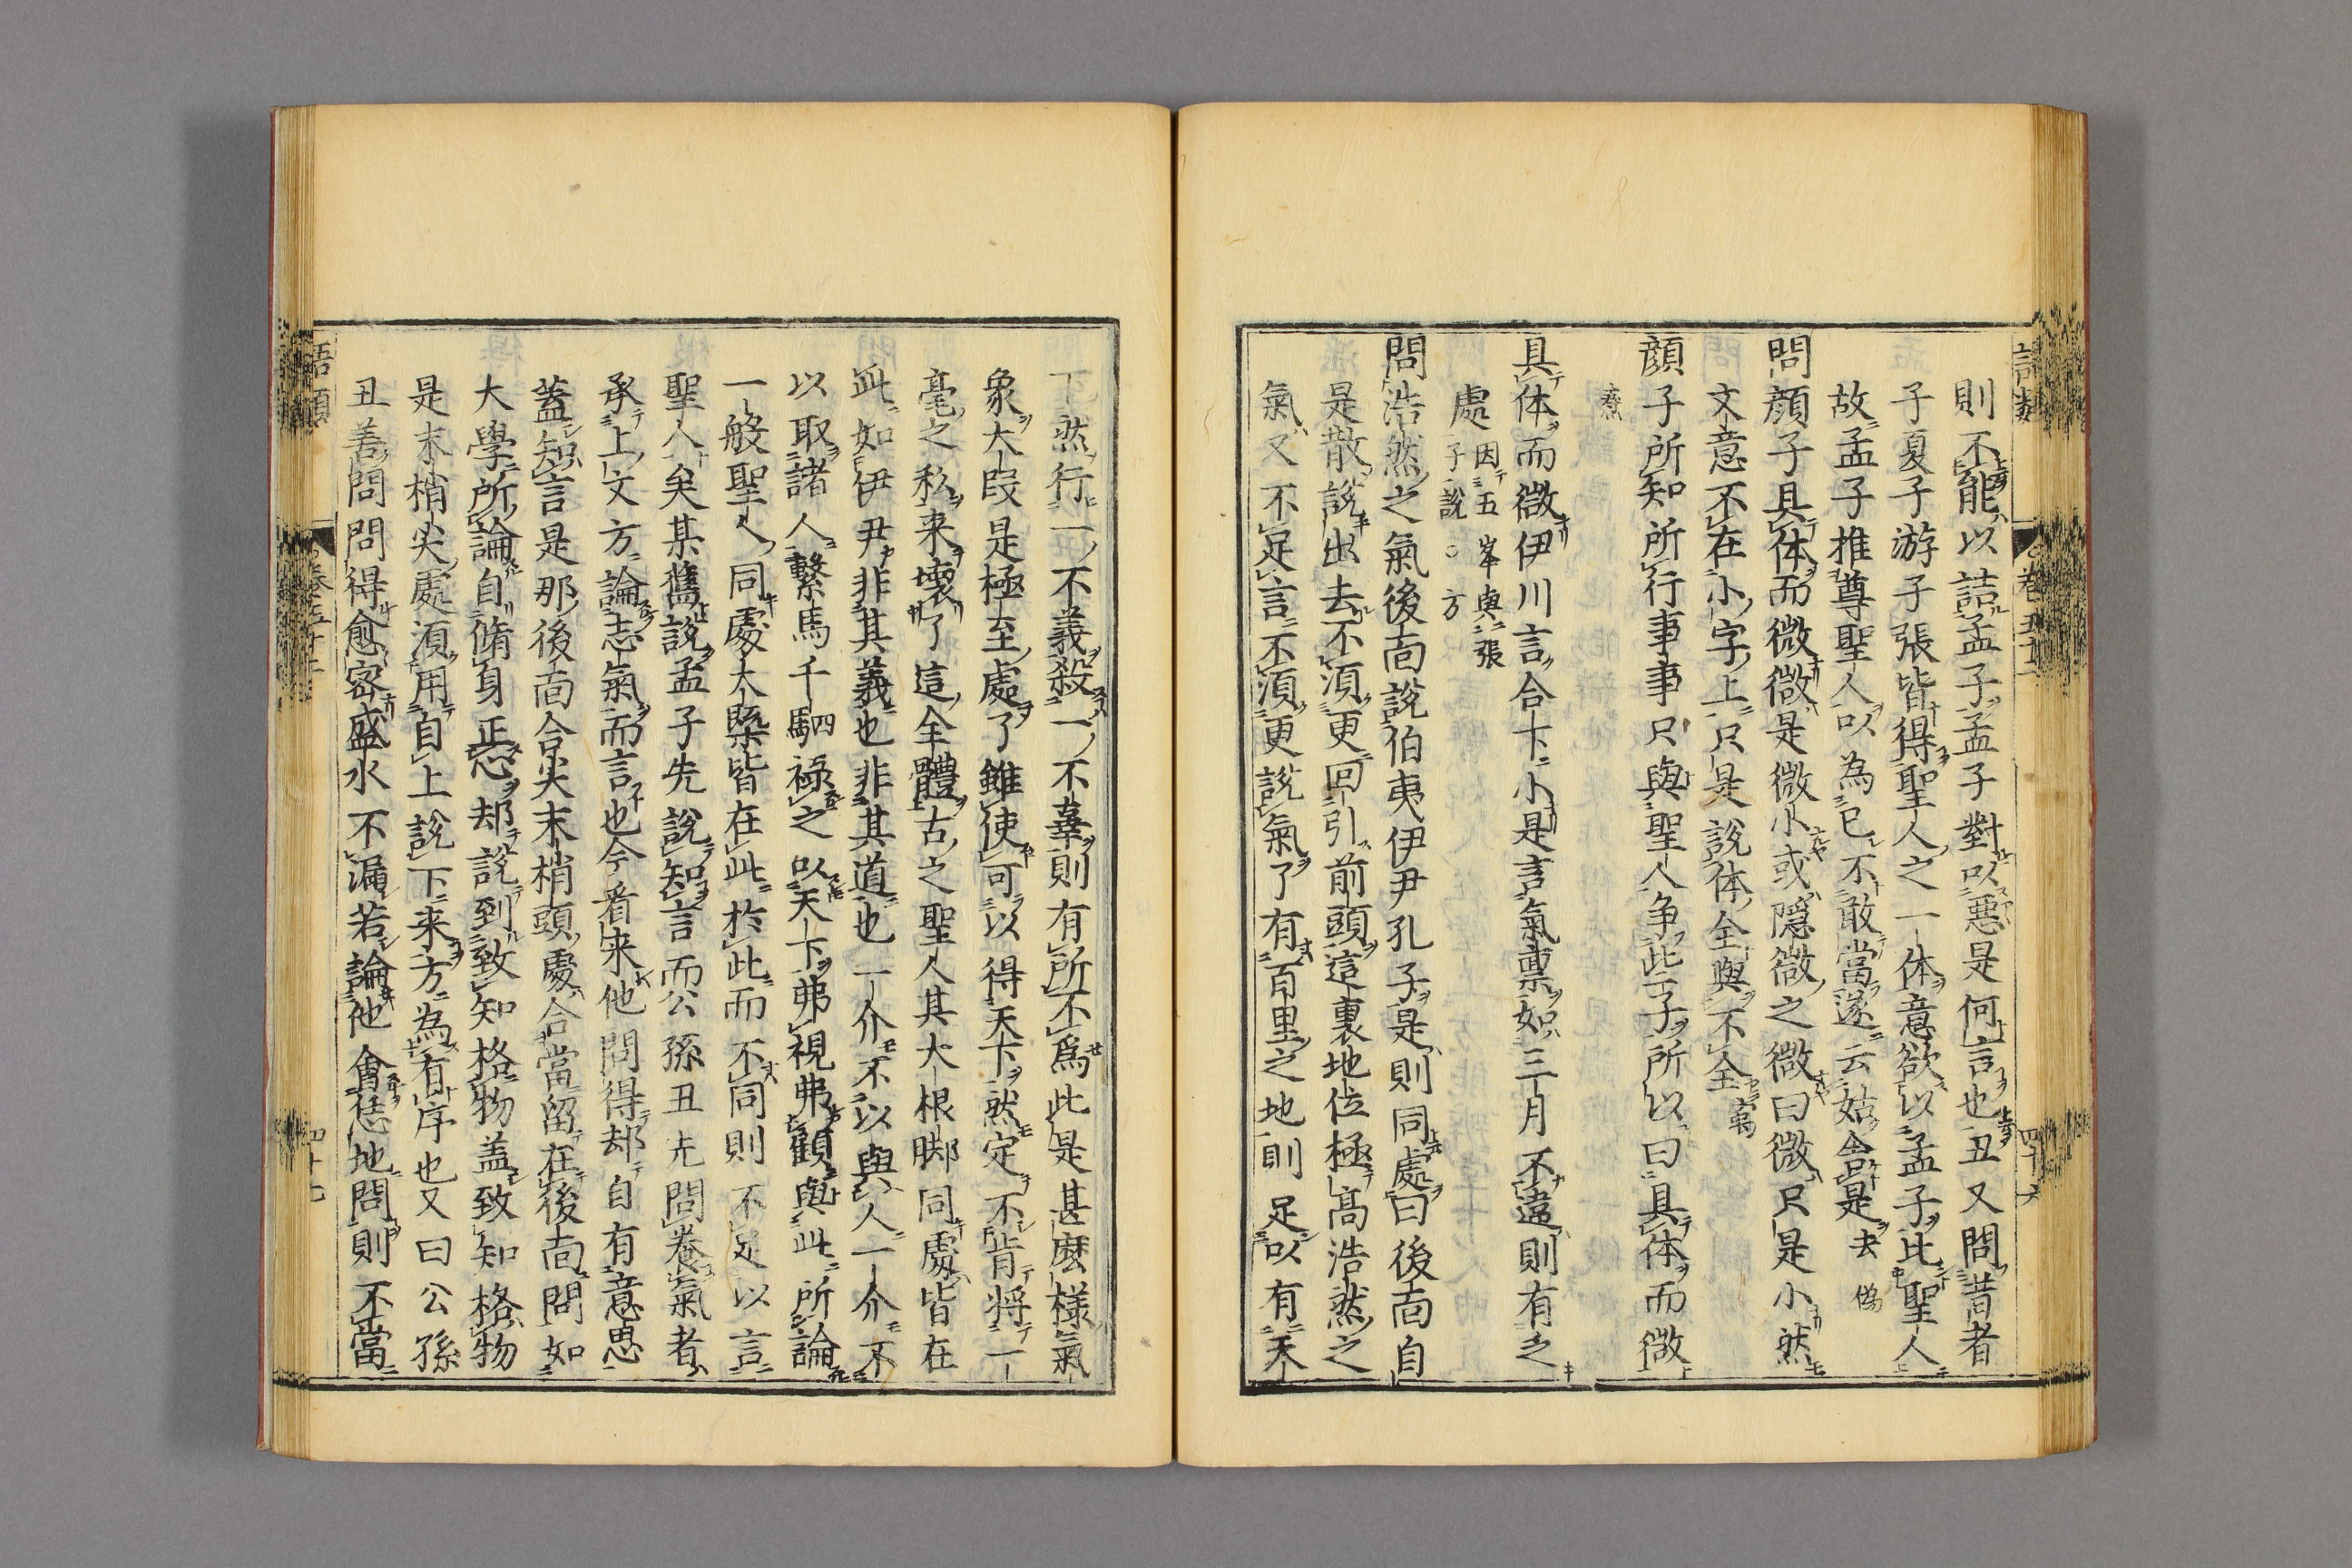 則不能以詰孟子孟子對以惡是何言也丑又問昔者
子夏子游子張皆得聖人之一体意欲以孟子比聖人
故孟子推尊聖人以為已不敢當遂云姑舎是去偽
問顔子具体而微微是微小或隱微之微曰微只是小然
文意不在小字上只是說体全與不全寓
顔子所知所行事事只與聖人争些子所以曰具体而微
燾
具体而微伊川言合下小是言氣稟如三月不違則有之
處因五峯與張
子說○方
問浩然之氣後靣說伯夷伊尹孔子是則同處曰後靣自
是散說出去不湏更回引前頭這裏地位極高浩然之
氣又不足言不湏更說氣了有百里之地則足以有天
下然行一不義殺一不辜則有所不爲此是甚麽樣氣
象大段是極至處了雖使可以得天下然定不肯将一
毫之私来壊了這全體古之聖人其大根脚同處皆在
此如伊尹非其義也非其道也一介不以與人一介不
以取諸人繫馬千駟禄之以天下弗視弗顧與此所論
一般聖人同處大槩皆在此於此而不同則不足以言
聖人矣某舊說孟子先說知言而公孫丑先問養氣者
承上文方論志氣而言也今看来他問得却自有意思
蓋知言是那後靣合尖末梢頭處合當留在後靣問如
大學所論自脩身正心却說到致知格物盖致知格物
是末梢尖處湏用自上說下来方為有序也又曰公孫
丑善問問得愈密盛水不漏若論他會恁地問則不當
語類
卷五十二
四十六
語類
卷五十二
四十七